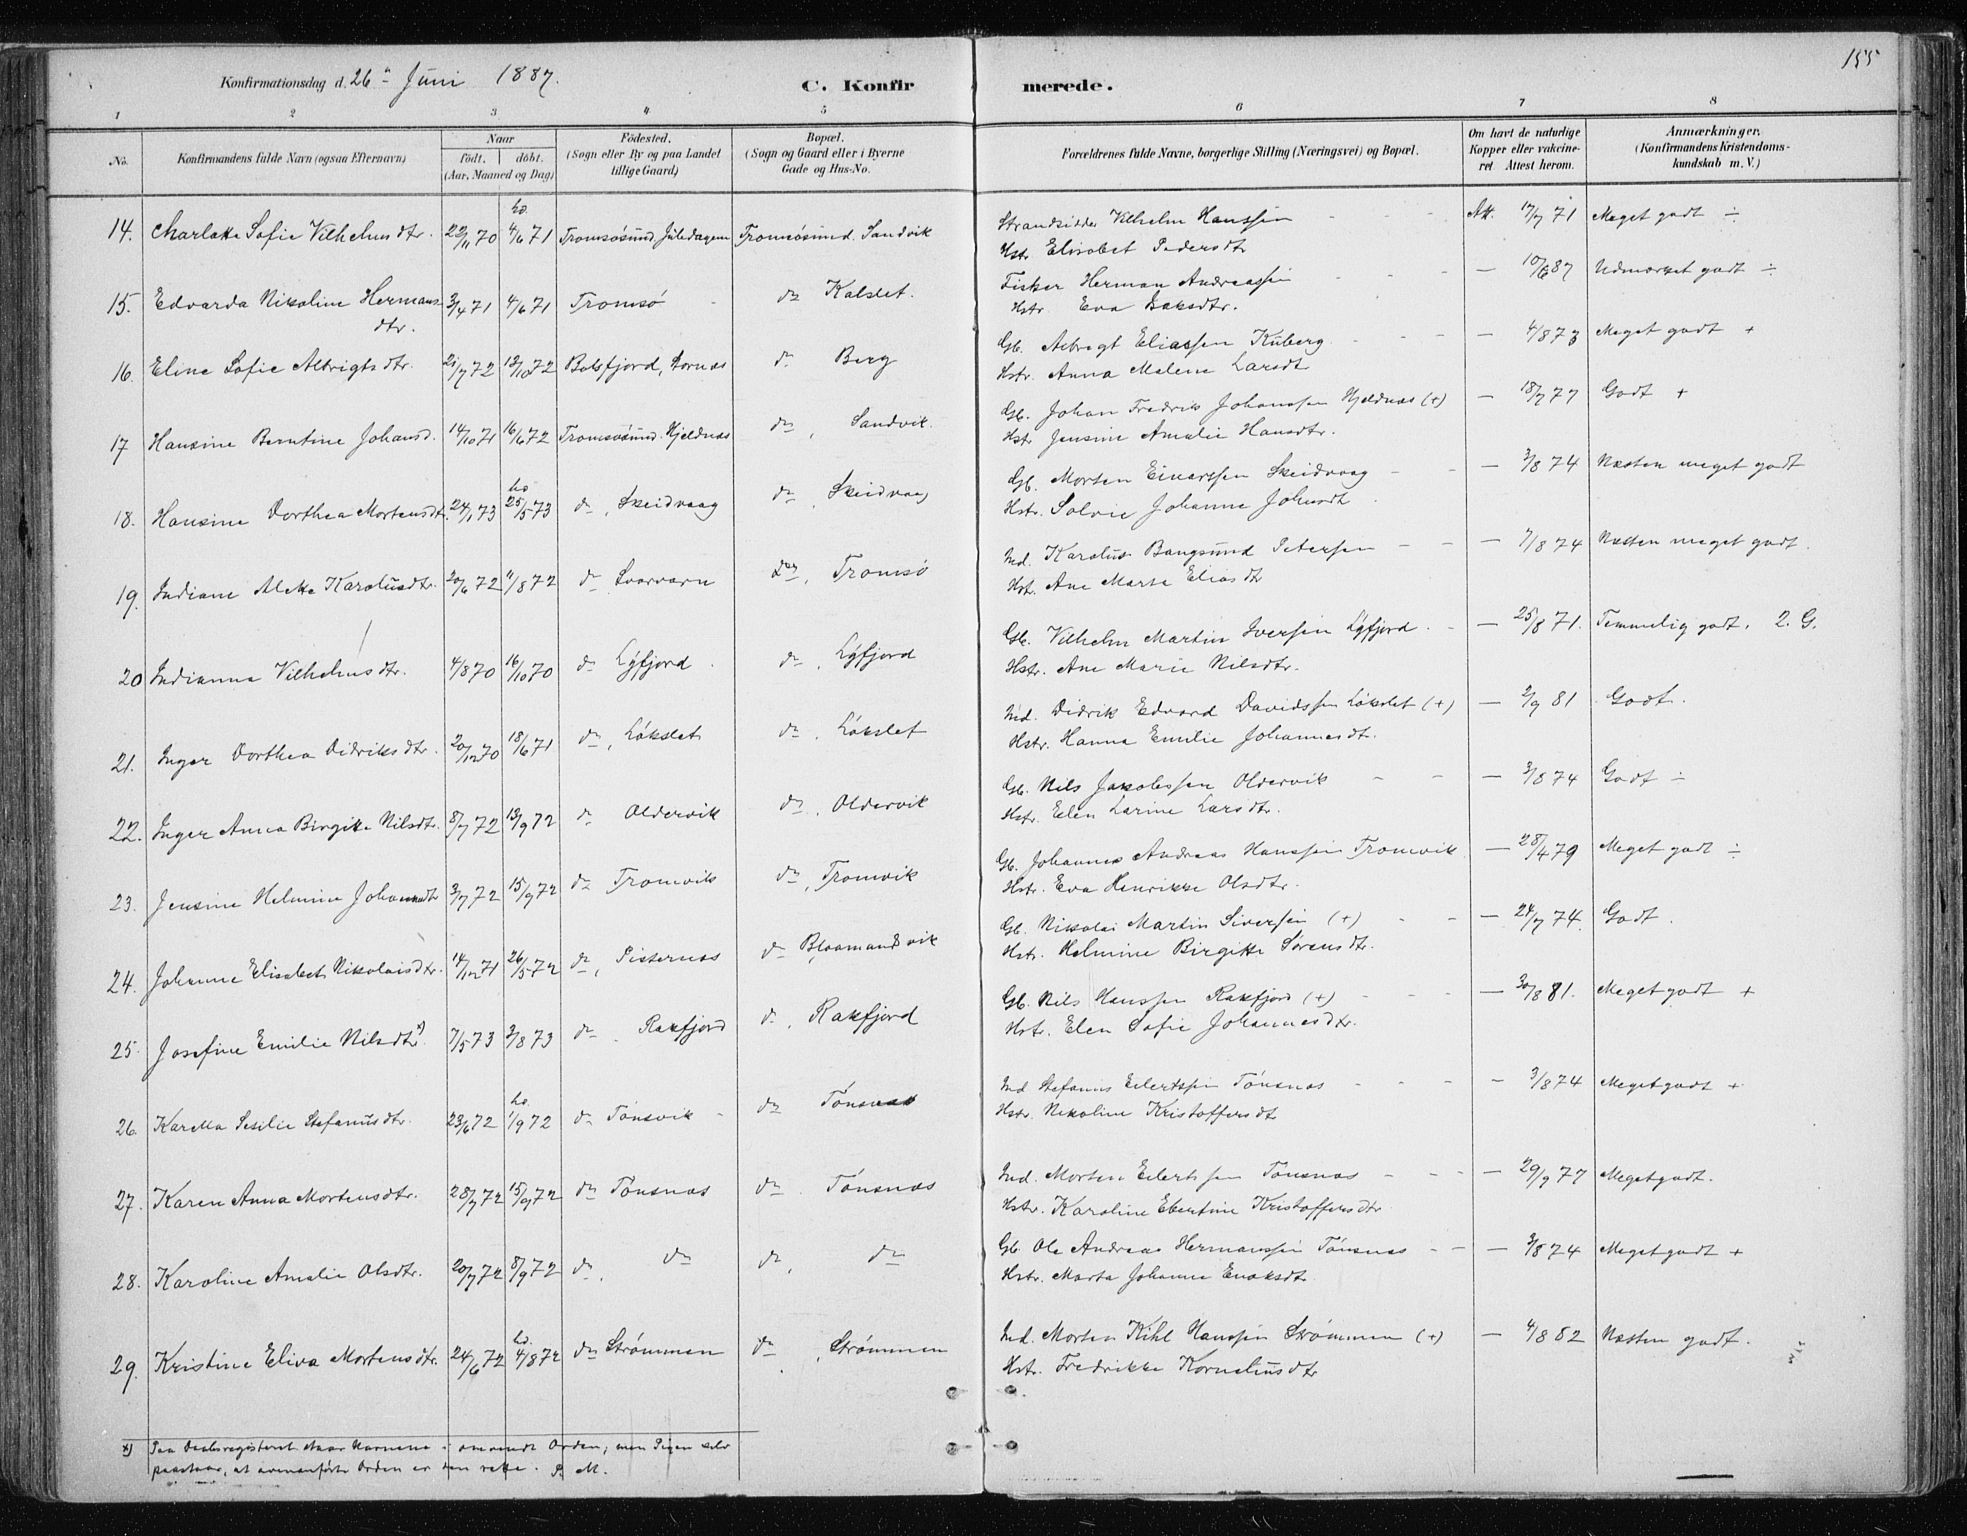 155
Konfirmationsdag d. 26 Juni 1887.
C. Konfirmerede.
1 2 3 4 5 6 7 8
No. Konfirmandens fulde Navn (ogsaa Efternavn) Naar født. døbt. (Aar, Maaned og Dag) Fødested. (Sogn eller By og paa Landet tillige Gaard) Bopæl. (Sogn og Gaard eller i Byerne Gade og Hus-No. Forældrenes fulde Navne, borgerlige Stilling (Næringsvei) og Bopæl. Om havt de naturlige Kopper eller vakcineret. Attest herom. Anmærkninger. (Konfirmandens Kristendomskundskab m. V.)
14. Charlotte Sofie Vilhelmsdtr. 22/11 70 hd. 4/6 71 Tromsøsund, Juledagene Tromsøsund, Sandvik Strandsidder Vilhelm Hanssen - - - Att. 17/7 71 Meget godt ÷
Hstr. Elisabet Pedersdtr
15. Edvarda Nikoline Hermansdtr. 3/4 71 4/6 71 Tromsø do Kalslet. Fisker Herman Andreassen - - - - 10/6 87 Udmærket godt ÷
Hstr. Eva Isaksdtr.
16. Eline Sofie Albrigtsdtr. 21/7 72 13/10 72 Balsfjord, Stornæs do Berg Gb. Albrigt Eliassen Kuberg - - - - 4/8 73 Meget godt +
Hstr. Anna Malene Larsdt
17 Hansine Berntine Johansd. 14/10 71 16/6 72 Tromsøsund. Hjeldnæs do, Sandvik. Gb. Johan Fredrik Johanssen Hjeldnæs (+) - 18/7 77 Godt +
Hstr Jensine Amalie Hansdtr.
18. Hansine Dorthea Mortensdtr. 24/1 73 hd 25/5 73 do, Skeidvaag do, Skeidvaag Gb. Morten Einarssen Skeidvaag - - - 3/8 74 Næsten meget godt
Hstr. Solvie Johanne Johnsdt
19. Indiane Alette Karolusdtr. 20/6 72 11/8 72 do Svarvarn do, Tromsø Ind. Karolus Bangsund Petersen - - - 7/8 74 Næsten meget godt.
Hstr. Ane Marta Eliasdt
20 Indianna Vilhelmsdtr. 4/8 70 16/10 70 do Lyfjord do, Lyfjord Gb. Vilhelm Martin Iversen Lyfjord - - - 25/8 71. Temmelig godt. 2. G.
Hstr. Ane Marie Nilsdtr.
21. Inger Dorthea Didriksdtr. 20/12 70 18/6 71 do, Løkslet do, Løkslet Ind. Didrik Edvard Davidssen Løkslet (+) - 2/9 81 Godt.
Hstr. Hanna Emilie Johannesdt.
22. Inger Anna Birgitte Nilsdtr. 8/7 72 13/9 72 do Oldervik do, Oldervik Gb. Nils Jakobssen Oldervik - - - 3/8 74 Godt ÷
Hstr. Elen Larine Larsdtr.
23. Jensine Helmine Johannesdtr 3/7 72 15/9 72 do Tromvik do, Tromvik Gb. Johannes Andreas Hanssen Tromvik - 28/4 79 Meget godt ÷
Hstr. Eva Henrikke Olsdtr.
24. Johanne Elisabet Nikolaisdtr. 14/12 71 26/5 72 do, Pisternæs do Blaamandsvik Gb. Nikolai Martin Siversen (+) - - - 24/7 74. Godt.
Hstr. Helmine Birgitte Sørensdtr.
25. Josefine Emilie Nilsdtr x) 7/5 73 3/8 73 do Rakfjord do, Rakfjord Gb. Nils Hanssen Rakfjord (+) - - - 30/8 81. Meget godt +
Hstr. Elen Sofie Johannesdtr.
26. Karella Sesilie Stefanusdtr. 23/6 72 hd. 1/9 72 do Tønsvik - do Tønsnæs Ind Stefanus Eilertssen Tønsnæs - - - 3/8 74 Meget godt +
Hstr. Nikoline Kristoffersdt
27. Karen Anna Mortensdtr. 28/7 72 15/9 72 do Tønsnæs do Tønsnæs Ind. Morten Eilertssen Tønsnæs - - - - 29/9 77 Meget godt.
Hstr. Karoline Ebertine Kristoffersdtr
28. Karoline Amalie Olsdtr. 20/7 72 8/9 72 do, do do, do Gb. Ole Andreas Hermanssen Tønsnæs - - - 3/8 74 Meget godt +
Hstr. Marta Johanna Enoksdt.
29. Kristine Eliva Mortensdtr. 24/6 72 hd. 4/8 72 do Strømmen do, Strømmen Ind. Morten Kihl Hanssen Strømmen (+) - 4/8 82 Næsten godt.
Hstr. Fredrikke Korneliusdtr
x) Paa Daabsregisteret staar Navnene i omvendt Orden; men Pigen selv
paastaar, at ovenanførte Orden er den rette. P. M.